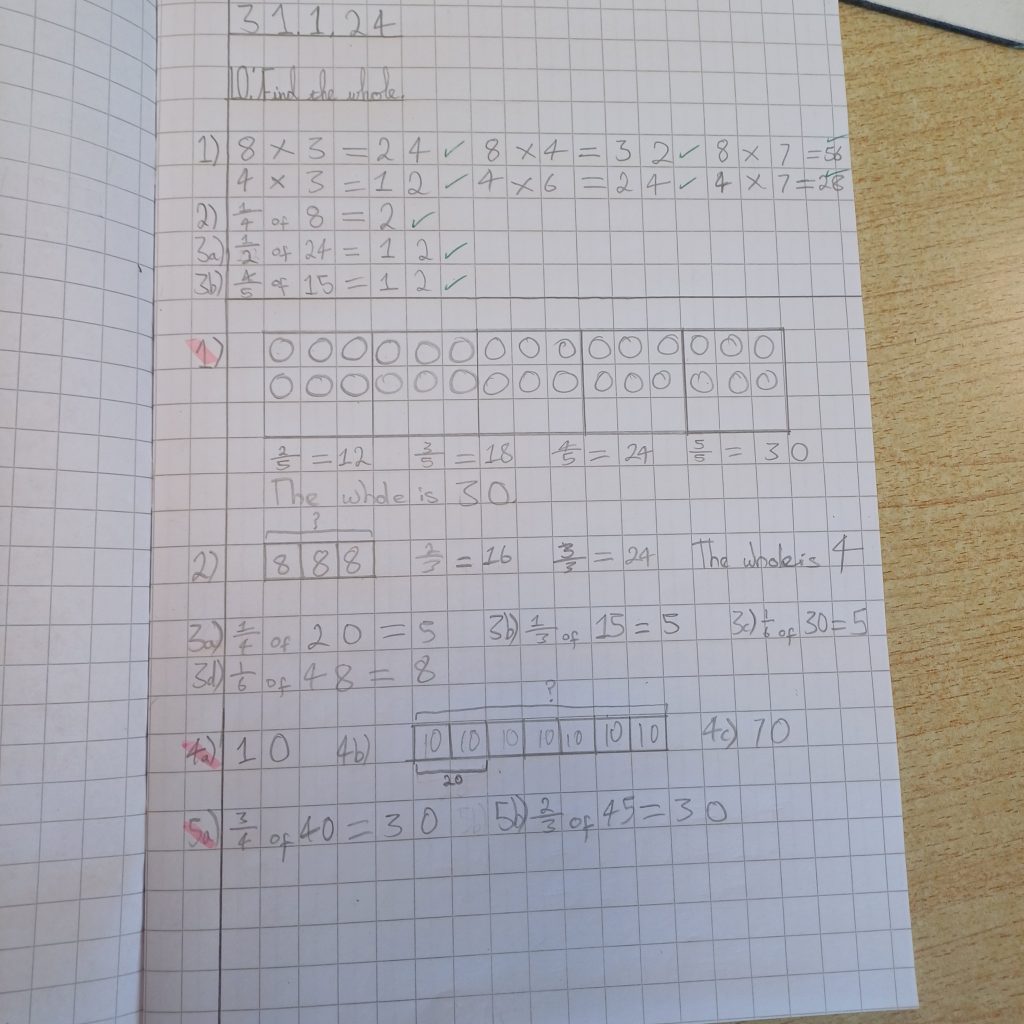 31.1.24
LO: Find the whole.
1) 8 × 3 = 24 ✓ 8 × 4 = 32 ✓ 8 × 7 = 56
4 × 3 = 12 ✓ 4 × 6 = 24 ✓ 4 × 7 = 28
2) 1/4 of 8 = 2 ✓
3a) 1/2 of 24 = 12 ✓
3b) 4/5 of 15 = 12 ✓
1)
2/5 = 12 3/5 = 18 4/5 = 24 5/5 = 30
The whole is 30
?
2) 8 8 8 2/3 = 16 3/3 = 24 The whole is 4
3a) 1/4 of 20 = 5 3b) 1/3 of 15 = 5 3c) 1/6 of 30 = 5
3d) 1/6 of 48 = 8
?
4a) 10 4b) 10 10 10 10 10 10 10 4c) 70
20
5a) 3/4 of 40 = 30 5b) 2/3 of 45 = 30